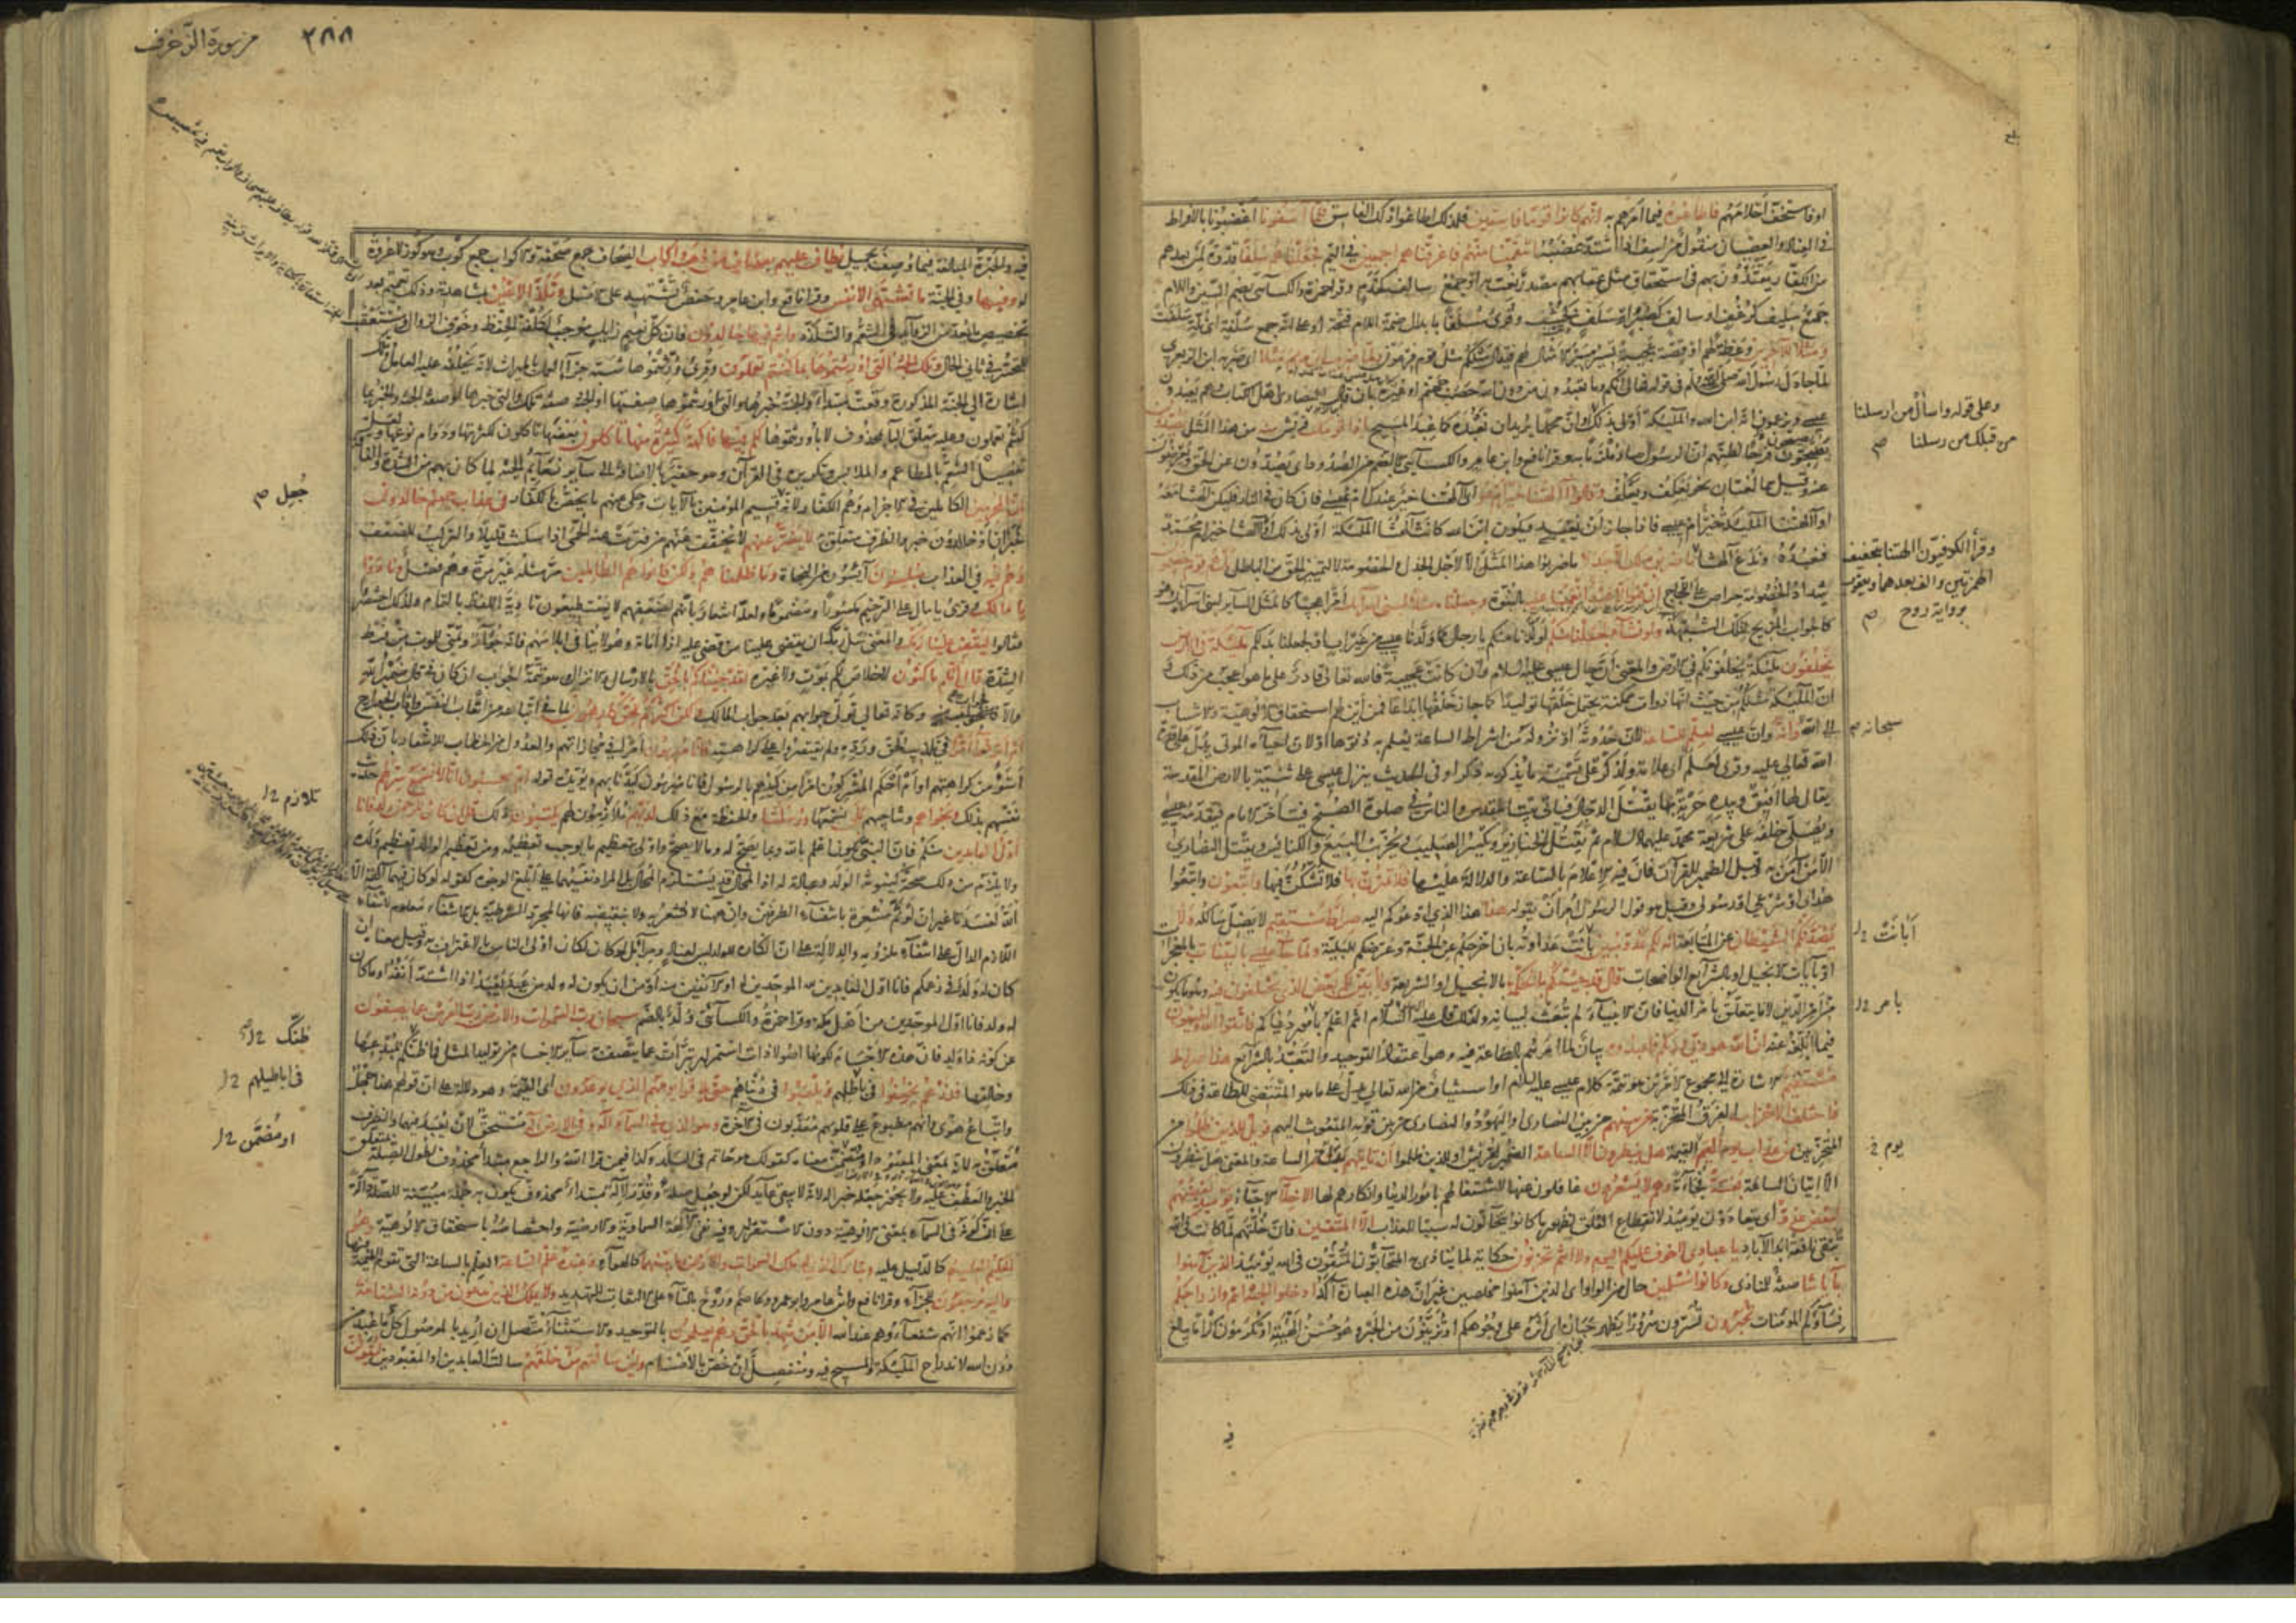 او فاستخف احلامهم فاطاعوه فيما امرهم به انهم كانوا قوما فاسقين فلذلك اطاعوا ذلك الفاسق فلما آسفونا اغضبونا بالافراط
في العناد والعصيان منقول من اسف اذا اشتد غضبه انتقمنا منهم فاغرقناهم اجمعين في اليم فجعلناهم سلفا قدوة لمن بعدهم
من الكفار يقتدون بهم في استحقاق مثل عقابهم مصدر نعت به او جمع سالف كخدم وقرأ حمزة والكسائي بضم السين واللام
جمع سليف كرغف او سالف كصبر او سلف كخشب وقرئ سلفا بابدال ضمة اللام فتحة او على انه جمع سلفة اي ثلة سلفت
ومثلا للآخرين وعظة لهم او قصة عجيبة تسير مسير الامثال لهم فيقال مثلكم مثل قوم فرعون ولما ضرب ابن مريم مثلا اي ضربه ابن الزبعرى
لما جادل رسول الله صلى الله عليه وسلم في قوله تعالى انكم وما تعبدون من دون الله حصب جهنم او غيره بان قال النصارى اهل كتاب وهم يعبدون
عيسى ويزعمون انه ابن الله والملئكة اولى بذلك وان محمدا يريد ان نعبده كما عبد المسيح اذا قومك قريش منه من هذا المثل يصدون
يضجون فرحا لظنهم ان الرسول صار ملزما به وقرأ نافع وابن عامر والكسائي بالضم من الصدود اي يصدون عن الحق ويعرضون
عنه وقيل هما لغتان نحو يعكف ويعكف وقالوا أآلهتنا خير ام هو اي آلهتنا خير عندك ام عيسى فان كان في النار فليكن آلهتنا معه
او آلهتنا الملئكة خير ام عيسى فاذا جاز ان يعبد ويكون ابن الله كانت آلهتنا الملئكة اولى بذلك او آلهتنا خير ام محمد
فنعبده وندع آلهتنا ما ضربوه لك الا جدلا ما ضربوا هذا المثل الا لاجل الجدل والخصومة لا لتمييز الحق من الباطل بل هم قوم خصمون
شداد الخصومة حراص على اللجاج ان هو الا عبد انعمنا عليه بالنبوة وجعلناه مثلا لبني اسرائيل امرا عجيبا كالمثل السائر لبني اسرائيل وهو
كالجواب المزيح لتلك الشبهة ولو نشاء لجعلنا منكم لولدنا منكم يا رجال كما ولدنا عيسى من غير اب او لجعلنا بدلكم ملئكة في الارض
يخلفون ملئكة يخلفونكم في الارض والمعنى ان حال عيسى عليه السلام وان كانت عجيبة فالله تعالى قادر على ما هو اعجب من ذلك و
ان الملئكة مثلكم من حيث انها ذوات ممكنة يحتمل خلقها توليدا كما جاز خلقها ابداعا فمن اين لهم استحقاق الالوهية والانتساب
الى الله وانه وان عيسى لعلم للساعة لان حدوثه او نزوله من اشراط الساعة يعلم به دنوها او لان احياء الموتى يدل على قدرة
الله تعالى عليه وقرئ لعلم اي علامة ولذكر على تسمية ما يذكر به ذكرا وفي الحديث ينزل عيسى على ثنية بالارض المقدسة
يقال لها افيق وبيده حربة بها يقتل الدجال فياتي بيت المقدس والناس في صلوة الصبح فيتأخر الامام فيقدمه عيسى
ويصلي خلفه على شريعة محمد عليهما السلام ثم يقتل الخنازير ويكسر الصليب ويخرب البيع والكنائس ويقتل النصارى
الا من آمن به وقيل الضمير للقرآن فان فيه الاعلام بالساعة والدلالة عليها فلا تمترن بها فلا تشكن فيها واتبعون واتبعوا
هداي او شرعي او رسولي وقيل هو قول الرسول امر ان يقوله هذا هذا الذي ادعوكم اليه صراط مستقيم لا يضل سالكه ولا
يصدنكم الشيطان عن المتابعة انه لكم عدو مبين بانت عداوته بان اخرجكم عن الجنة وعرضكم للبلية ولما جاء عيسى بالبينات بالمعجزات
او بآيات الانجيل او بالشرائع الواضحات قال قد جئتكم بالحكمة بالانجيل او الشريعة ولابين لكم بعض الذي تختلفون فيه وهو ما يكون
من امر الدين لا ما يتعلق بامر الدنيا فان الانبياء لم تبعث لبيانه ولذلك قال عليه السلام انتم اعلم بامور دنياكم فاتقوا الله واطيعون
فيما ابلغه عنه ان الله هو ربي وربكم فاعبدوه بيان لما امرهم بالطاعة فيه وهو اعتقاد التوحيد والتعبد بالشرائع هذا صراط
مستقيم الاشارة الى مجموع الامرين وهو تتمة كلام عيسى عليه السلام او استيناف من الله تعالى يدل على ما هو المقتضي للطاعة في ذلك
فاختلف الاحزاب الفرق المتحزبة من بينهم من بين النصارى او اليهود والنصارى من بين قومه المبعوث اليهم فويل للذين ظلموا من
المتحزبين من عذاب يوم اليم القيمة هل ينظرون الا الساعة الضمير لقريش او للذين ظلموا ان تاتيهم بدل من الساعة والمعنى هل ينظرون
الا اتيان الساعة بغتة فجاءة وهم لا يشعرون غافلون عنها لاشتغالهم بامور الدنيا وانكارهم لها الاخلاء الاحباء يومئذ بعضهم
لبعض عدو اي يتعادون يومئذ لانقطاع العلق لظهور ما كانوا يتخالون له سببا للعذاب الا المتقين فان خلتهم لما كانت في الله
تبقى نافعة ابد الآباد يا عبادي لا خوف عليكم اليوم ولا انتم تحزنون حكاية لما ينادى به المتحابون المتقون في الله يومئذ الذين آمنوا
بآياتنا صفة للمنادى وكانوا مسلمين حال من الواو اي الذين آمنوا مخلصين غير ان هذه العبارة آكد ادخلوا الجنة انتم وازواجكم
نساؤكم المؤمنات تحبرون تسرون سرورا يظهر حباره اي اثره على وجوهكم او تزينون من الحبر وهو حسن الهيئة او تكرمون اكراما يبالغ
فيه
وعلى قوله واسأل من ارسلنا
من قبلك من رسلنا صح
وقرأ الكوفيون آلهتنا بتحقيق
الهمزتين والف بعدهما ويعقوب
برواية روح صح
سبحانه صح
أبانت
بامر
يوم
من سورة الزخرف ٣٨٨
فيه والحبرة المبالغة فيما وصف بجميل يطاف عليهم بصحاف من ذهب واكواب الصحاف جمع صحفة والاكواب جمع كوب وهو كوز لا عروة
له وفيها وفي الجنة ما تشتهي الانفس وقرأ نافع وابن عامر وحفص تشتهيه على الاصل وتلذ الاعين بمشاهدته وذلك تعميم بعد
تخصيص ما يعد من الزوائد في التنعم والتلذذ وانتم فيها خالدون فان كل نعيم زائل موجب لكلفة الحفظ وخوف الزوال ومستعقب
للتحسر في ثاني الحال وتلك الجنة التي اورثتموها بما كنتم تعملون وقرئ ورثتموها شبه جزاء العمل بالميراث لانه يخلفه عليه العامل وتلك
اشارة الى الجنة المذكورة وقعت مبتدأ والجنة خبرها والتي اورثتموها صفتها او الجنة صفة تلك والتي خبرها او صفة الجنة والخبر بما
كنتم تعملون وعليه يتعلق الباء بمحذوف لا باورثتموها لكم فيها فاكهة كثيرة منها تأكلون بعضها تأكلون لكثرتها ودوام نوعها ولعل
تفصيل التنعم بالمطاعم والملابس وتكريره في القرآن وهو حقير بالاضافة الى سائر نعائم الجنة لما كان بهم من الشدة والفاقة
ان المجرمين الكاملين في الاجرام وهم الكفار لانه جعل قسيم المؤمنين بالآيات وحكى عنهم ما يخص بالكفار في عذاب جهنم خالدون
خبر ان او خالدون خبر والظرف متعلق به لا يفتر عنهم لا يخفف عنهم من فترت عنه الحمى اذا سكنت قليلا والتركيب للضعف
وهم فيه في العذاب مبلسون آيسون من النجاة وما ظلمناهم ولكن كانوا هم الظالمين مر مثله غير مرة وهم فصل ونادوا
يا مالك وقرئ يا مال على الترخيم مكسورا ومضموما ولعله اشعار بانهم لضعفهم لا يستطيعون تادية اللفظ بالتمام ولذلك اختصروا
فقالوا ليقض علينا ربك والمعنى سل ربك ان يقضي علينا من قضى عليه اذا اماته وهو لا ينافي ابلاسهم فانه جؤار وتمن للموت من فرط
الشدة قال انكم ماكثون لا خلاص لكم بموت ولا غيره لقد جئناكم بالحق بالارسال والانزال وهو تتمة الجواب ان كان في قال ضمير الله
والا فجواب منه وكانه تعالى تولى جوابهم بعد جواب مالك ولكن اكثركم للحق كارهون لما في اتباعه من اتعاب النفس وآداب الجوارح
ام ابرموا امرا في تكذيب الحق ورده ولم يقتصروا على كراهيته فانا مبرمون امرا في مجازاتهم والعدول عن الخطاب للاشعار بان ذلك
اسوأ من كراهتهم او ام احكم المشركون امرا من كيدهم بالرسول فانا مبرمون كيدنا بهم ويؤيده قوله ام يحسبون انا لا نسمع سرهم حديث
نفسهم بذلك ونجواهم وتناجيهم بلى نسمعها ورسلنا والحفظة مع ذلك لديهم ملازمون لهم يكتبون ذلك قل ان كان للرحمن ولد فانا
اول العابدين منكم فان النبي يكون اعلم بالله وبما يصح له وما لا يصح واولى بتعظيم ما يوجب تعظيمه ومن تعظيم الوالد تعظيم ولده
ولا يلزم من ذلك صحة كينونة الولد وعبادته له اذ المحال قد يستلزم المحال بل المراد نفيهما على ابلغ الوجوه كقوله لو كان فيهما آلهة الا
الله لفسدتا غير ان لو ثم مشعرة بانتفاء الطرفين وان ههنا لا تشعر به ولا بنقيضه فانها لمجرد الشرطية بل الانتفاء معلوم لانتفاء
اللازم الدال على انتفاء ملزومه والدلالة على ان انكاره للولد ليس لعناد ومراء بل لو كان لكان اولى الناس بالاعتراف به وقيل معناه ان
كان له ولد في زعمكم فانا اول العابدين لله الموحدين له او الآنفين منه او من ان يكون له ولد من عبد يعبد اذا اشتد انفه او ما كان
له ولد فانا اول الموحدين من اهل مكة وقرأ حمزة والكسائي ولد بالضم سبحان رب السموات والارض رب العرش عما يصفون
عن كونه ذا ولد فان هذه الاجسام لكونها اصولا ذات استمرار تبرأت عما يتصف به سائر الاجسام من توليد المثل فما ظنكم بمبدعها
وخالقها فذرهم يخوضوا في باطلهم ويلعبوا في دنياهم حتى يلاقوا يومهم الذي يوعدون اي القيمة وهو دلالة على ان قولهم هذا جهل
واتباع هوى وانهم مطبوع على قلوبهم معذبون في الآخرة وهو الذي في السماء اله وفي الارض اله مستحق لان يعبد فيهما والظرف
متعلق به لانه بمعنى المعبود او متضمن معناه كقولك هو حاتم في البلد وكذا فيمن قرأ الله والراجع مبتدأ محذوف لطول الصلة بمتعلق
الخبر والعطف عليه ولا يجوز جعله خبرا له لانه لا يبقى عائد لكن لو جعل صلة وقدر لاله مبتدأ محذوف يكون به جملة مبينة للصلة دالة
على ان كونه في السماء بمعنى الالوهية دون الاستقرار وفيه نفي الآلهة السماوية والارضية واختصاصه باستحقاق الالوهية وهو
الحكيم العليم كالدليل عليه وتبارك الذي له ملك السموات والارض وما بينهما كالهواء وعنده علم الساعة العلم بالساعة التي تقوم القيمة فيها
واليه ترجعون للجزاء وقرأ نافع وابن عامر وابو عمرو وعاصم وروح بالتاء على الالتفات للتهديد ولا يملك الذين يدعون من دونه الشفاعة
كما زعموا انهم شفعاؤهم عند الله الا من شهد بالحق وهم يعلمون بالتوحيد والاستثناء متصل ان اريد بالموصول كل ما عبد من
دون الله لاندراج الملئكة والمسيح فيه ومنفصل ان خص بالاصنام ولئن سألتهم من خلقهم سألت العابدين او المعبودين ليقولن
جعل صح
تلازم
ظنك
في اباطيلهم
او مضمن